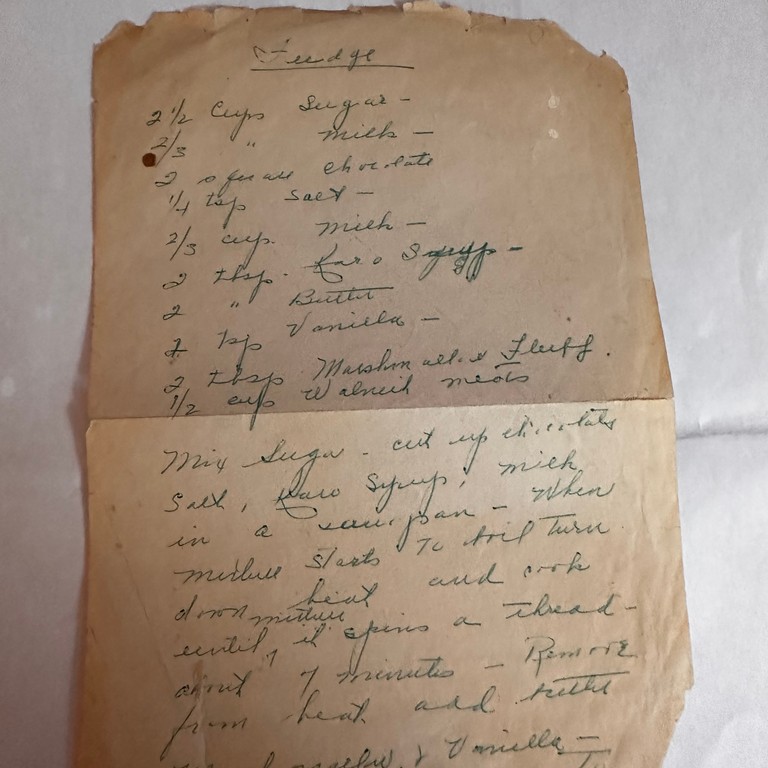 Fudge
2 1/2 Cups Sugar -
2/3 " Milk -
2 square chocolate
1/4 tsp Salt -
2/3 cup. Milk -
2 tbsp. Karo Syrup -
2 " Butter
1 tsp Vanilla -
2 tbsp Marshmallow Fluff.
1/2 cup Walnut meats
Mix Sugar - cut up chocolate
Salt, Karo Syrup, milk
in a saucepan - When
mixture starts to boil turn
down heat and cook
mixture
until it spins a thread -
about 7 minutes - Remove
from heat add butter
& Vanilla -